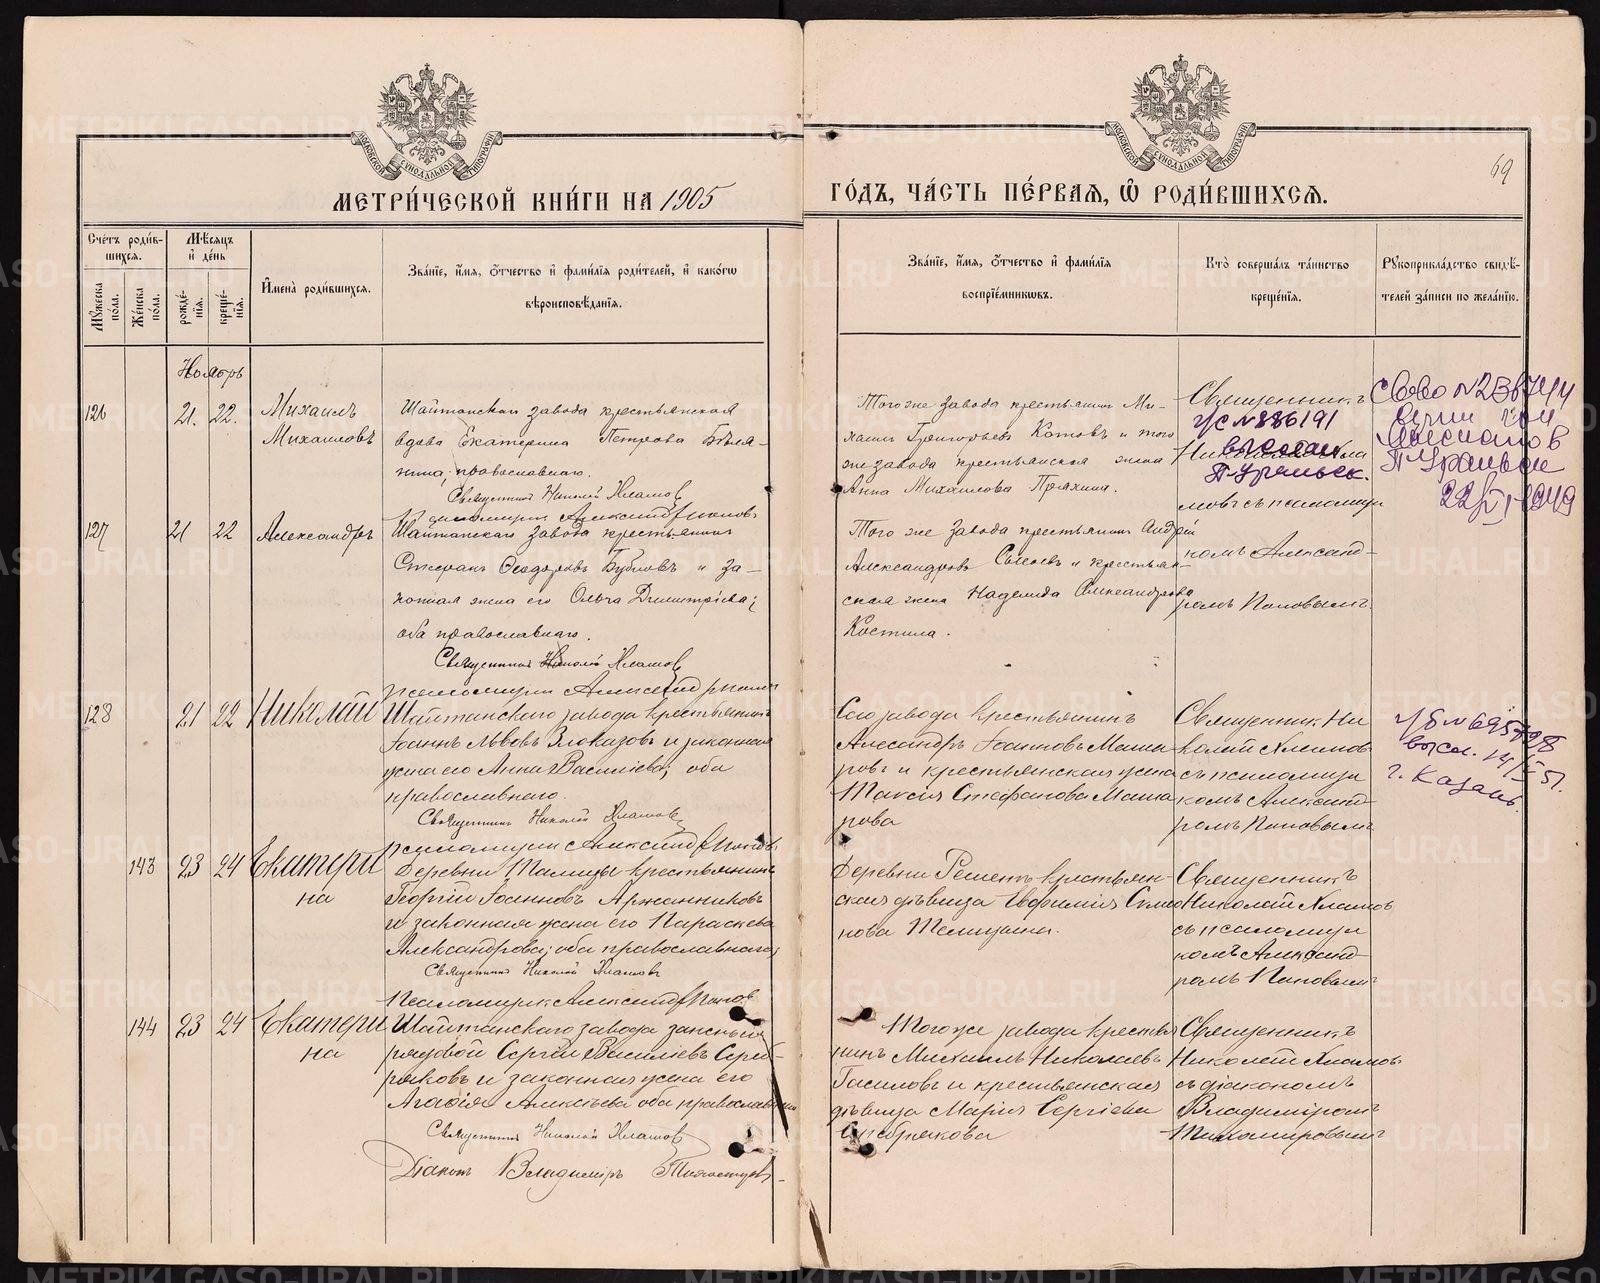 МЕТРИ́ЧЕСКОЙ КНИ́ГИ НА 1905
ГО́ДЪ, ЧА́СТЬ ПЕ́РВАЯ, Ѽ РОДИ́ВШИХСѦ.
69
Сче́тъ роди́в-
шихсѧ.
Мѣ́сѧцъ
и҆ де́нь
Мꙋ́жеска
по́ла.
Же́нска
по́ла.
рожде́-
нїѧ.
креще́-
нїѧ.
И҆мена̀ роди́вшихсѧ.
Зва́нїе, и҆́мѧ, ѻ҆́тчество и҆ фами́лїѧ роди́телей, и҆ како́гѡ
вѣроисповѣ́данїѧ.
Зва́нїе, и҆́мѧ, ѻ҆́тчество и҆ фами́лїѧ
воспрїе́мникѡвъ.
Кто̀ соверша́лъ та́инство
креще́нїѧ.
Рꙋкоприкла́дство свидѣ́-
телей за́писи по жела́нїю.
Ноябрь
126
21. 22.
Михаилъ
Михаиловъ
Шайтанскаго завода крестьянская
вдова Екатерина Петрова
православнаго.
Священникъ Николай
Того же завода крестьянинъ Ми-
хаилъ Григорьевъ Котовъ и того
же завода крестьянская жена
Анна Михаилова Пряхина.
Священникъ
г/с №886191
выслан
П-Уральск.
мовъ съ псаломщи
комъ Александ-
ромъ Поповымъ.
П-Уральск
1949
127
21 22
Александръ
Шайтанскаго завода крестьянинъ
Стефанъ Ѳеодоровъ Бубновъ и за-
конная жена его Ольга Димитріева;
оба православнаго.
Священникъ Николай
Псаломщикъ Александръ Поповъ
Того же завода крестьянинъ Андрей
Александровъ и крестьян-
ская жена Надежда Александрова
Костина.
128
21 22
Николай
Шайтанскаго завода крестьянинъ
Іоаннъ Львовъ Злоказовъ и законная
жена его Анна Василіева; оба
православнаго.
Священникъ Николай
Псаломщикъ Александръ Поповъ
Сего завода крестьянинъ
Александръ Іоанновъ Маша-
ровъ и крестьянская жена
Таисія Стефанова Маша-
рова
Священникъ Ни
колай
съ псаломщи
комъ Александ-
ромъ Поповымъ
высл.
г. Казань
143
23 24
Екатери
на
Деревни Талицы крестьянинъ
Георгій Іоанновъ Аржанниковъ
и законная жена его Параскева
Александрова; оба православнаго;
Священникъ Николай
Псаломщикъ Александръ Поповъ
Деревни крестьян-
ская дѣвица Евфимія
нова
Священникъ
Николай
съ псаломщи
комъ Александ-
ромъ Поповымъ
144
23 24
Екатери
на
Шайтанскаго завода запасный
рядовой Сергій Василіевъ Сереб-
ряковъ и законная жена его
Агафія Алексѣева оба православнаго
Священникъ Николай
Діаконъ Владиміръ Тихомировъ
Того же завода крестья
нинъ Михаилъ Николаевъ
и крестьянская
дѣвица Марія Сергіева
Серебрякова
Священникъ
Николай
съ діакономъ
Владиміромъ
Тихомировымъ
METRIKI.GASO-URAL.RU